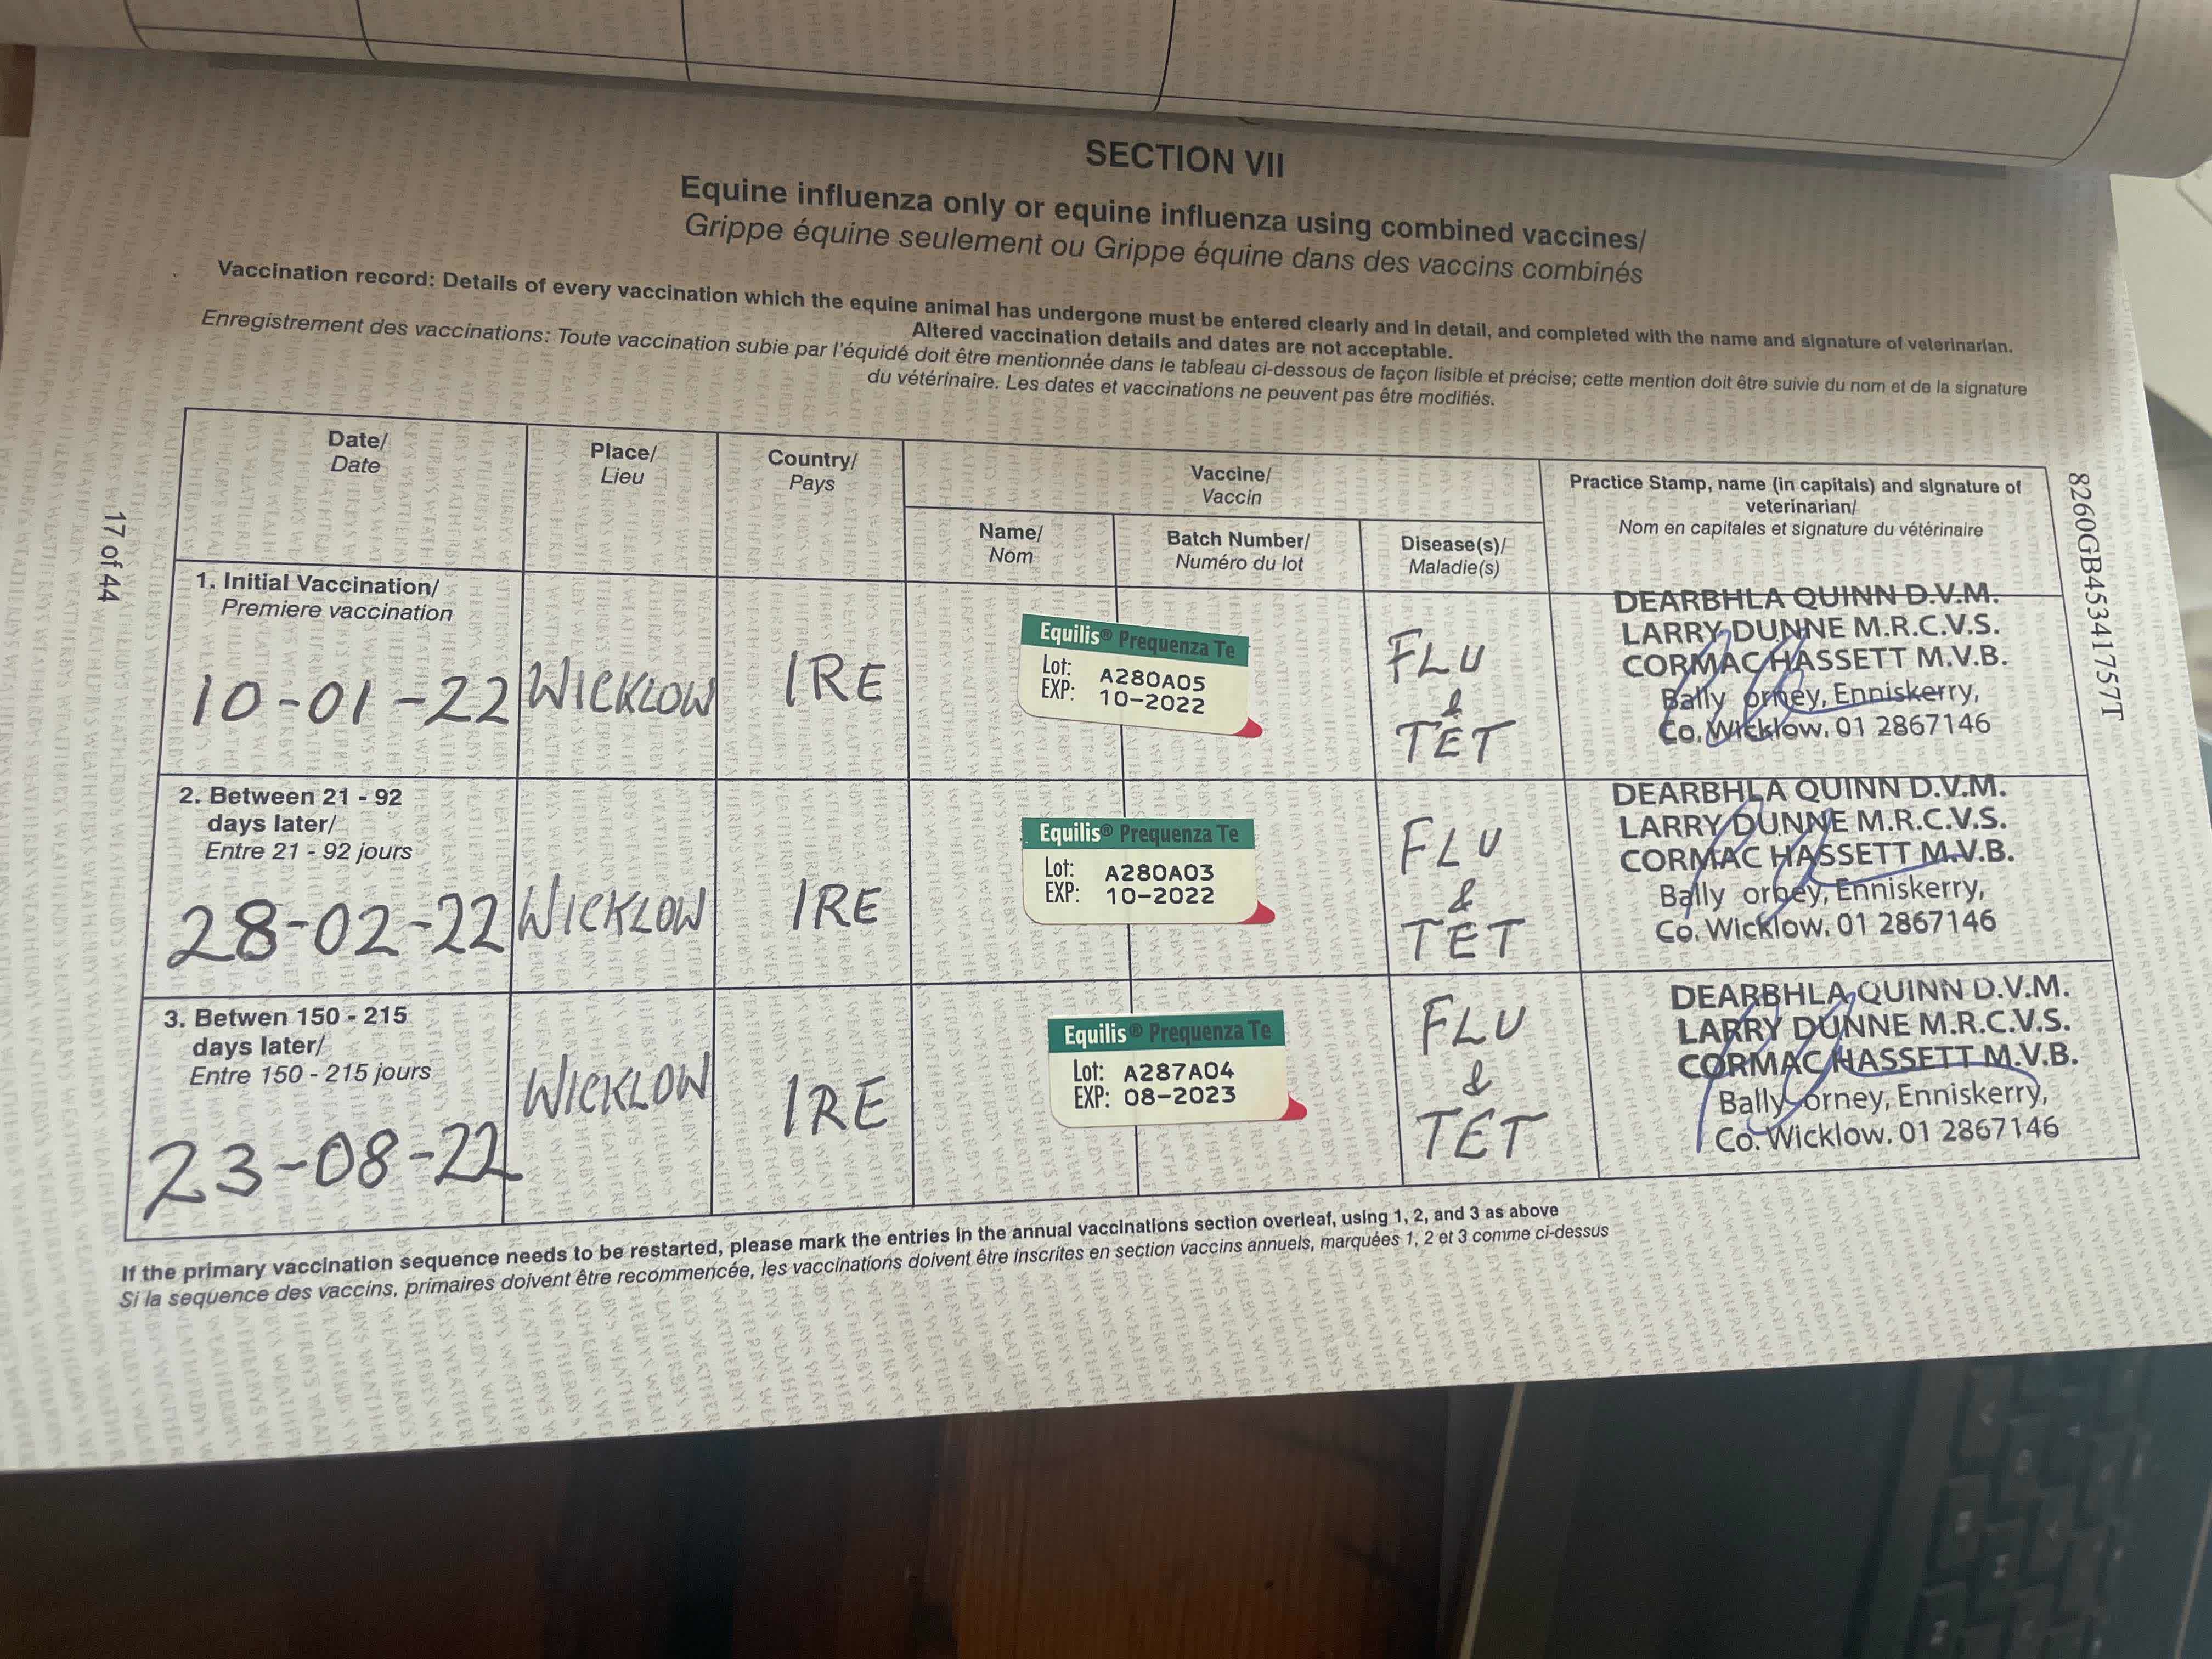 SECTION VII
Equine influenza only or equine influenza using combined vaccines/
Grippe équine seulement ou Grippe équine dans des vaccins combinés
Vaccination record: Details of every vaccination which the equine animal has undergone must be entered clearly and in detail, and completed with the name and signature of veterinarian.
Altered vaccination details and dates are not acceptable.
Enregistrement des vaccinations: Toute vaccination subie par l'équidé doit être mentionnée dans le tableau ci-dessous de façon lisible et précise; cette mention doit être suivie du nom et de la signature
du vétérinaire. Les dates et vaccinations ne peuvent pas être modifiés.
17 of 44
8260GB45341757T
Date/
Date
Place/
Lieu
Country/
Pays
Vaccine/
Vaccin
Name/
Nom
Batch Number/
Numéro du lot
Disease(s)/
Maladie(s)
Practice Stamp, name (in capitals) and signature of
veterinarian/
Nom en capitales et signature du vétérinaire
1. Initial Vaccination/
Premiere vaccination
10-01-22
WICKLOW
IRE
Equilis® Prequenza Te
Lot: A280A05
EXP: 10-2022
FLU
&
TET
DEARBHLA QUINN D.V.M.
LARRY DUNNE M.R.C.V.S.
CORMAC HASSETT M.V.B.
Bally orney, Enniskerry,
Co. Wicklow. 01 2867146
2. Between 21 - 92
days later/
Entre 21 - 92 jours
28-02-22
WICKLOW
IRE
Equilis® Prequenza Te
Lot: A280A03
EXP: 10-2022
FLU
&
TET
DEARBHLA QUINN D.V.M.
LARRY DUNNE M.R.C.V.S.
CORMAC HASSETT M.V.B.
Bally orney, Enniskerry,
Co. Wicklow. 01 2867146
3. Betwen 150 - 215
days later/
Entre 150 - 215 jours
23-08-22
WICKLOW
IRE
Equilis® Prequenza Te
Lot: A287A04
EXP: 08-2023
FLU
&
TET
DEARBHLA QUINN D.V.M.
LARRY DUNNE M.R.C.V.S.
CORMAC HASSETT M.V.B.
Bally orney, Enniskerry,
Co. Wicklow. 01 2867146
If the primary vaccination sequence needs to be restarted, please mark the entries in the annual vaccinations section overleaf, using 1, 2, and 3 as above
Si la sequence des vaccins, primaires doivent être recommencée, les vaccinations doivent être inscrites en section vaccins annuels, marquées 1, 2 et 3 comme ci-dessus